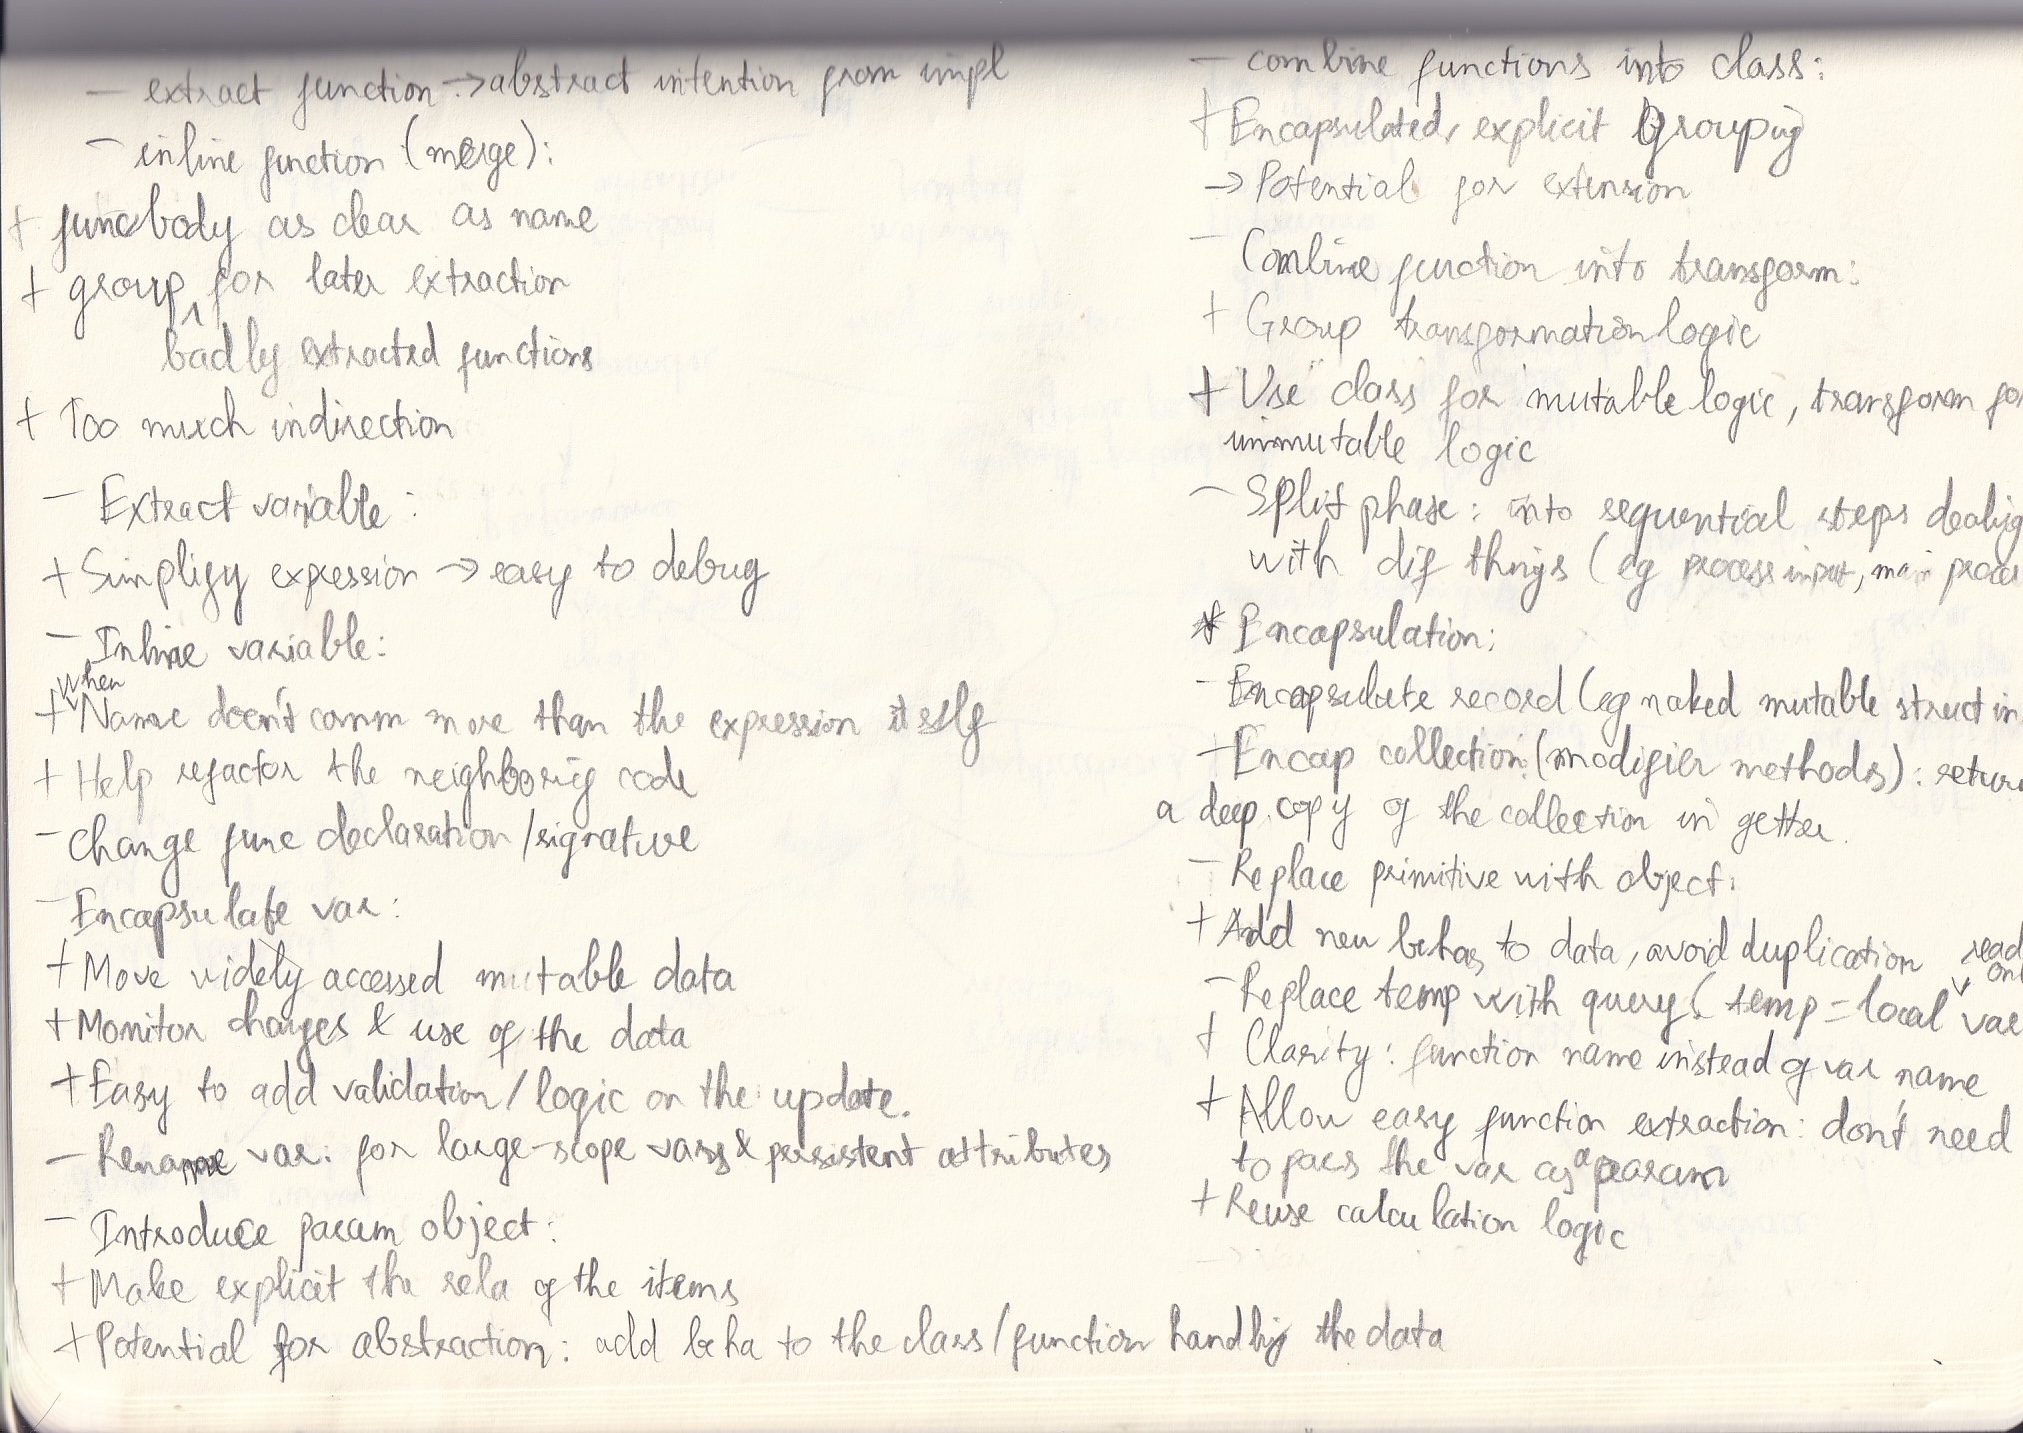 - extract function -> abstract intention from impl
- inline function (merge):
+ func body as clear as name
+ group for later extraction
badly extracted functions
+ Too much indirection
- Extract variable:
+ Simplify expression -> easy to debug
- Inline variable:
when
+ Name doesn't comm more than the expression itself
+ Help refactor the neighboring code
- Change func declaration/signature
- Encapsulate var:
+ Move widely accessed mutable data
+ Monitor changes & use of the data
+ Easy to add validation/logic on the update.
- Rename var: for large-scope vars & persistent attributes
- Introduce param object:
+ Make explicit the rela of the items
+ Potential for abstraction: add beha to the class/function handling the data
- combine functions into class:
+ Encapsulated, explicit grouping
-> Potential for extension
- Combine function into transform:
+ Group transformation logic
+ "Use" class for mutable logic, transform for
immutable logic
- Split phase: into sequential steps dealing
with dif things (eg process input, main proces
* Encapsulation:
- Encapsulate record (eg naked mutable struct in
- Encap collection: (modifier methods): return
a deep copy of the collection in getter.
- Replace primitive with object:
+ Add new behas to data, avoid duplication
read
- Replace temp with query (temp = local var
+ Clarity: function name instead of var name
+ Allow easy function extraction: don't need
to pass the var as a param
+ Reuse calculation logic